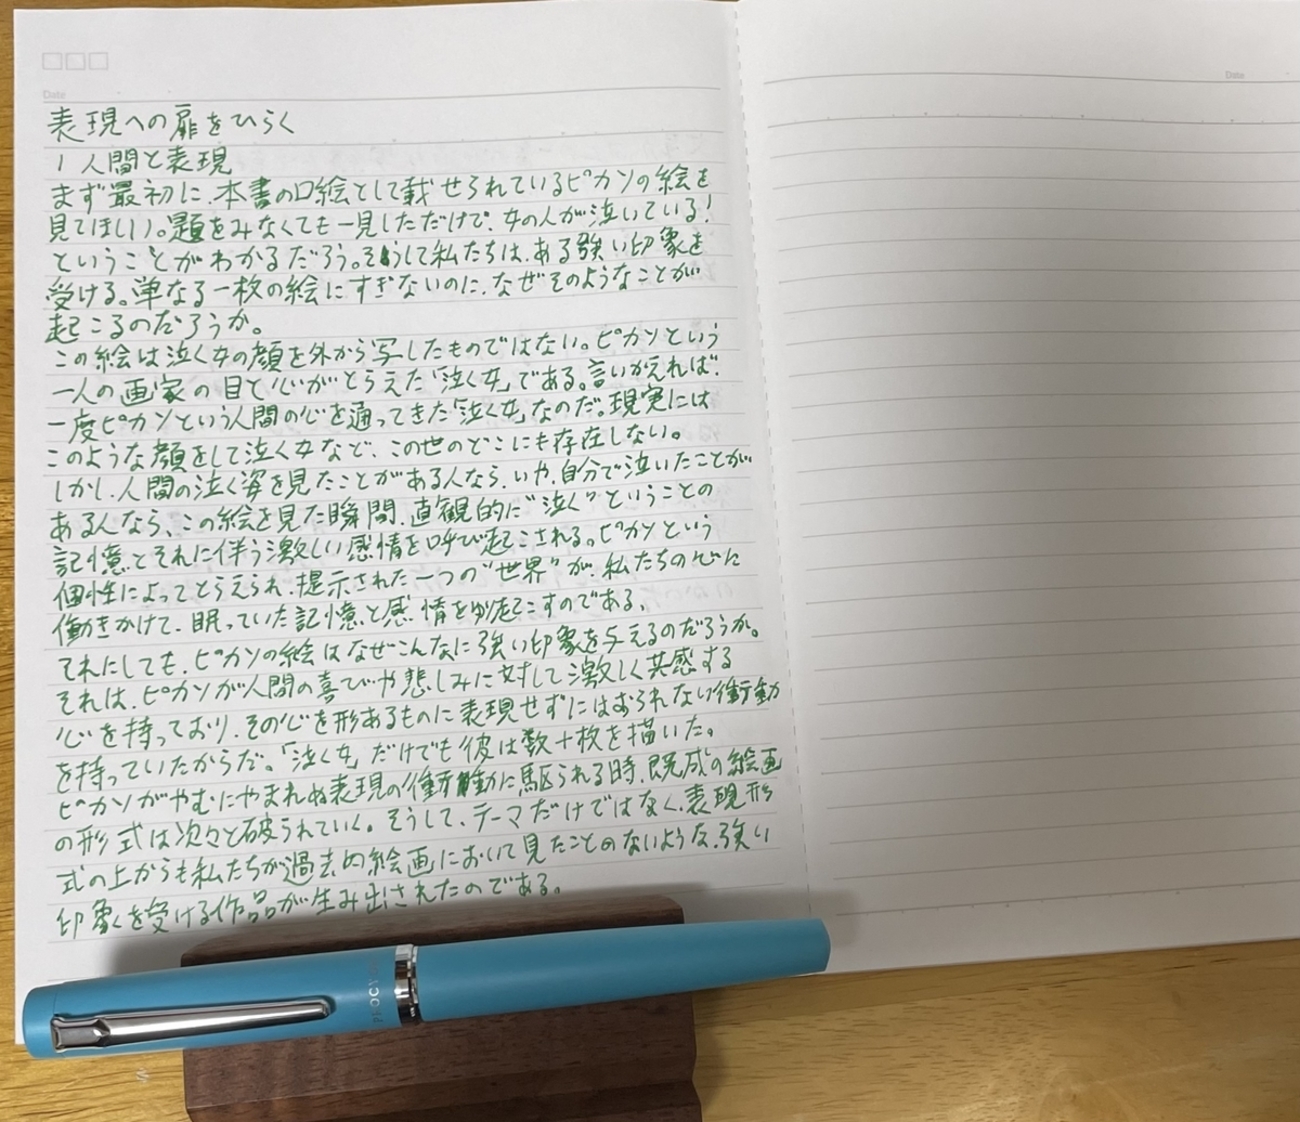 Date
Date
表現への扉をひらく
1 人間と表現
まず最初に、本書の口絵として載せられているピカソの絵を
見てほしい。題をみなくても一見しただけで、女の人が泣いている!
ということがわかるだろう。そうして私たちは、ある強い印象を
受ける。単なる一枚の絵にすぎないのに、なぜそのようなことが
起こるのだろうか。
この絵は泣く女の顔を外から写したものではない。ピカソという
一人の画家の目と心がとらえた「泣く女」である。言いかえれば、
一度ピカソという人間の心を通ってきた「泣く女」なのだ。現実には
このような顔をして泣く女など、この世のどこにも存在しない。
しかし、人間の泣く姿を見たことがある人なら、いや、自分で泣いたことが
ある人なら、この絵を見た瞬間、直観的に“泣く”ということの
記憶とそれに伴う激しい感情を呼び起こされる。ピカソという
個性によってとらえられ、提示された一つの“世界”が、私たちの心に
働きかけて、眠っていた記憶と感情を呼び起こすのである。
それにしても、ピカソの絵はなぜこんなに強い印象を与えるのだろうか。
それは、ピカソが人間の喜びや悲しみに対して激しく共感する
心を持っており、その心を形あるものに表現せずにはおられない衝動
を持っていたからだ。「泣く女」だけでも彼は数十枚を描いた。
ピカソがやむにやまれぬ表現の衝動に駆られる時、既成の絵画
の形式は次々と破られていく。そうして、テーマだけではなく、表現形
式の上からも私たちが過去の絵画において見たことのないような、強い
印象を受ける作品が生み出されたのである。